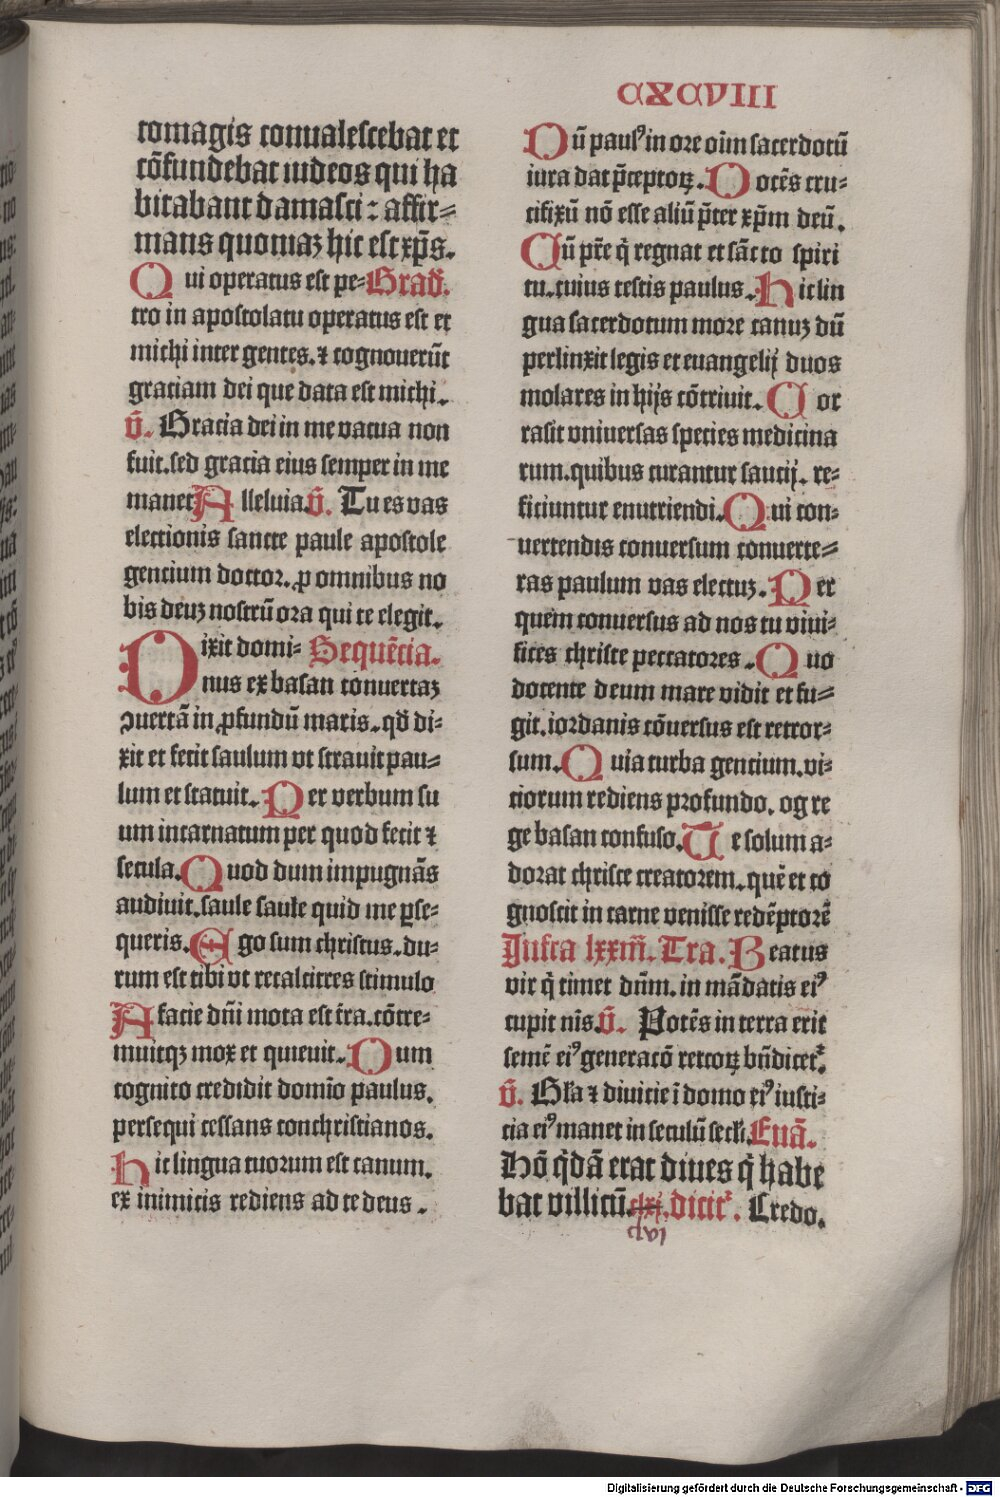 CXCVIII
comagis conualescebat et
cõfundebat iudeos qui ha
bitabant damasci: affir-
mans quoniaꝫ hic est xp̃s.
Qui operatus est pe- Grad̃.
tro in apostolatu operatus est et
michi inter gentes. ⁊ cognouerũt
graciam dei que data est michi.
Ṽ. Gracia dei in me vacua non
fuit. sed gracia eius semper in me
manet Alleluia. Ṽ. Tu es vas
electionis sancte paule apostole
gencium doctor. ꝓ omnibus no
bis deuꝫ nostrũ ora qui te elegit.
Dixit domi- Sequẽcia.
nus ex basan conuertaꝫ
ↄuertã in ꝓfundũ maris. qd̃ di-
xit et fecit saulum vt strauit pau-
lum et statuit. Per verbum su
um incarnatum per quod fecit ⁊
secula. Quod dum impugnãs
audiuit. saule saule quid me ꝑse-
queris. Ego sum christus. du-
rum est tibi vt recalcitres stimulo
A facie dñi mota est t̃ra. cõtre-
muitqꝫ mox et quieuit. Dum
cognito credidit domĩo paulus.
persequi cessans conchristianos.
Hic lingua tuorum est canum.
ex inimicis rediens ad te deus.
Dũ paulꝰ in ore oĩm sacerdotũ
iura dat p̃ceptoꝝ. Docẽs cru-
cifixũ nõ esse aliũ p̃ter xp̃m deũ.
Cũ pr̃e q̃ regnat et sãcto spiri
tu. cuius testis paulus. Hic lin
gua sacerdotum more canuꝫ dũ
perlinxit legis et euangelij duos
molares in hijs cõtriuit. Cor
rasit vniuersas species medicina
rum. quibus curantur saucij. re-
ficiuntur enutriendi. Qui con-
uertendis conuersum conuerte-
ras paulum vas electuꝫ. Per
quem conuersus ad nos tu viui-
fices christe peccatores. Quo
docente deum mare vidit et fu-
git. iordanis cõuersus est retror-
sum. Quia turba gencium. vi-
ciorum rediens profundo. og re
ge basan confuso. Te solum a-
dorat christe creatorem. quẽ et co
gnoscit in carne venisse redẽptorẽ
Infra lxxm̃. Tra. Beatus
vir q̃ timet dñm. in mãdatis eiꝰ
cupit nĩs. Ṽ. Potẽs in terra erit
semẽ eiꝰ generacõ rectoꝝ bñdicet᷑.
Ṽ. Gl̃a ⁊ diuicie ĩ domo eiꝰ iusti-
cia eiꝰ manet in seculũ secl̃i. Euã.
Hõ q̃dã erat diues q̃ habe
bat villicũ. clxi. dicit᷑. Credo.
clvi
Digitalisierung gefördert durch die Deutsche Forschungsgemeinschaft - DFG